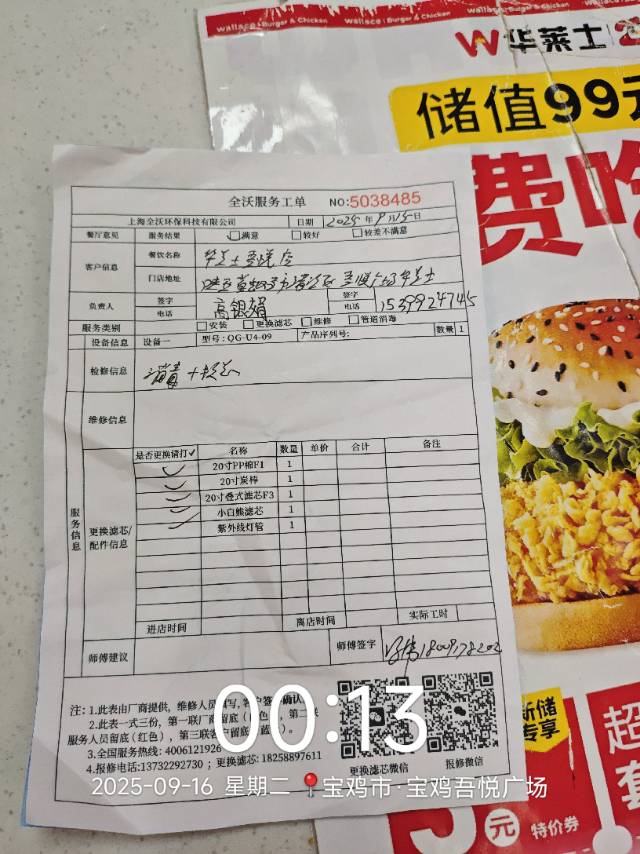 Wallace Burger & Chicken Wallace Burger & Chicken Wallace Burger & Chicken
华莱士
储值99元
费吃
全沃服务工单 NO:5038485
上海全沃环保科技有限公司 日期 2025年9月15日
餐厅意见 服务结果 满意 较好 较差不满意
客户信息 餐饮名称 华莱士吾悦店
门店地址 吾悦广场华莱士
负责人 签字 电话 高银婿 签字 电话 15399924745
服务类别 安装 更换滤芯 维修 管道消毒
设备信息 设备一 型号:QG-U4-09 产品序列号: 数量 1
检修信息 消毒+换芯
维修信息
服务信息
更换滤芯/配件信息
是否更换请打✓ 名称 数量 单价 合计 备注
✓ 20寸PP棉F1 1
✓ 20寸炭棒 1
✓ 20寸叠式滤芯F3 1
✓ 小白熊滤芯 1
紫外线灯管 1
进店时间 离店时间 实际工时
师傅建议 师傅签字
注:1.此表由厂商提供,维修人员填写,客户签字确认
2.此表一式三份,第一联厂商留底(白色),第二联
服务人员留底(红色),第三联客户留底(蓝色)。
3.全国服务热线:4006121926
4.报修电话:13732292730 ; 更换滤芯:18258897611
更换滤芯微信 报修微信
00:13
2025-09-16 星期二 宝鸡市·宝鸡吾悦广场
新储
专享
超
套
5元 特价券